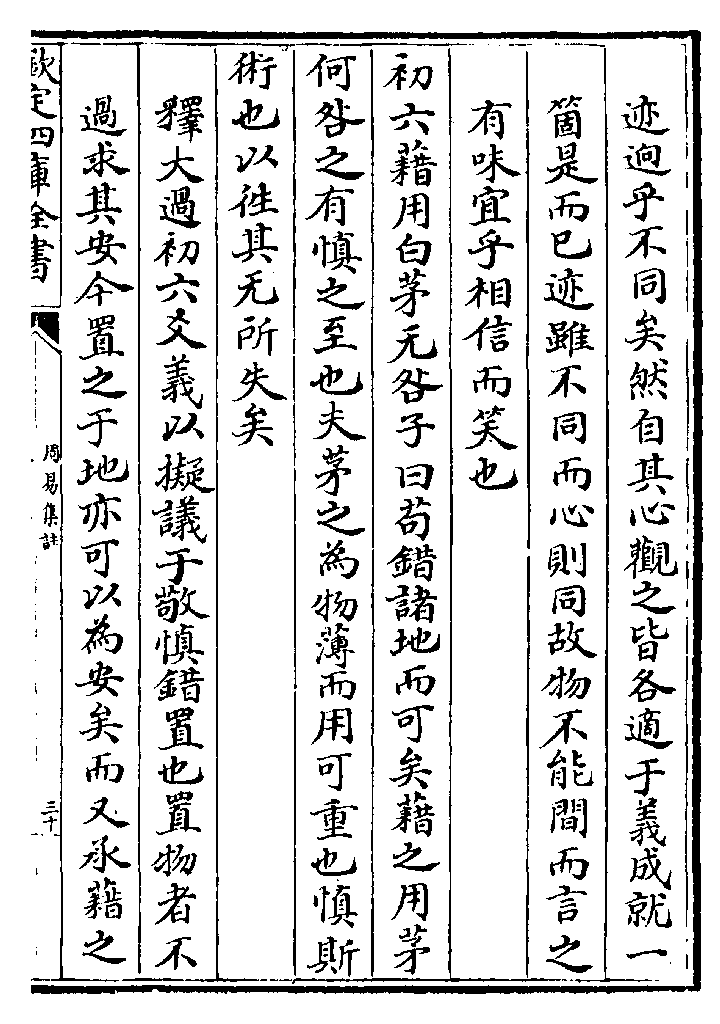 迹逈乎不同矣然自其心觀之皆各適于義成就一
箇是而已迹雖不同而心則同故物不能間而言之
有味宜乎相信而笑也
初六藉用白茅无咎子曰苟錯諸地而可矣藉之用茅
何咎之有慎之至也夫茅之為物薄而用可重也慎斯
術也以徃其无所失矣
釋大過初六爻義以擬議于敬慎錯置也置物者不
過求其安今置之于地亦可以為安矣而又承藉之
欽定四庫全書
周易集註
三十